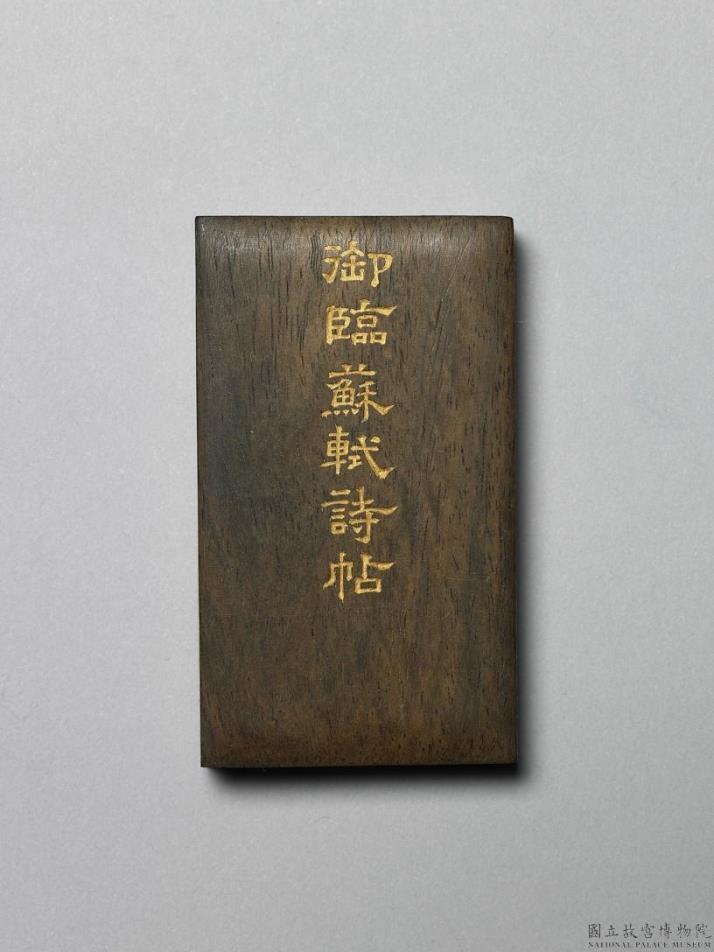 御臨蘇軾詩帖
國立故宮博物院
NATIONAL PALACE MUSEUM